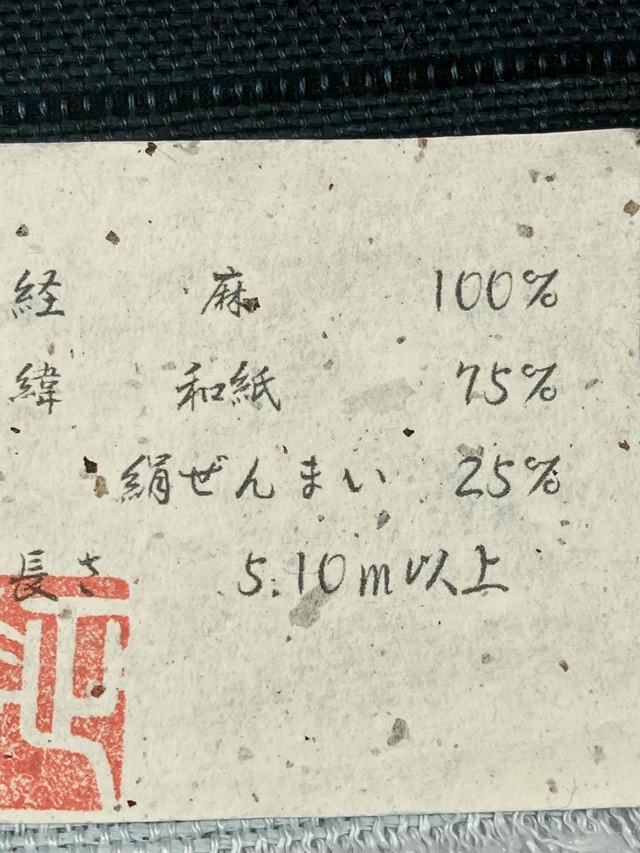 経 麻 100%
緯 和紙 75%
絹ぜんまい 25%
長さ 5.10m以上